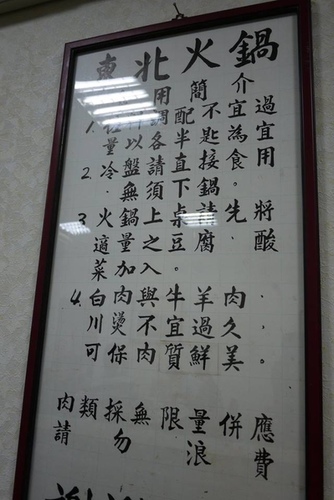 東北火鍋
用簡介
1. 料調配不宜過
量以各半匙為宜
2. 冷盤請直接食用
無須下鍋。
3. 火鍋上桌請先將
適量之豆腐、酸
菜加入。
4. 白肉與牛羊肉、
川燙不宜過久。
可保肉質鮮美。
肉類採無限量供應
請勿浪費